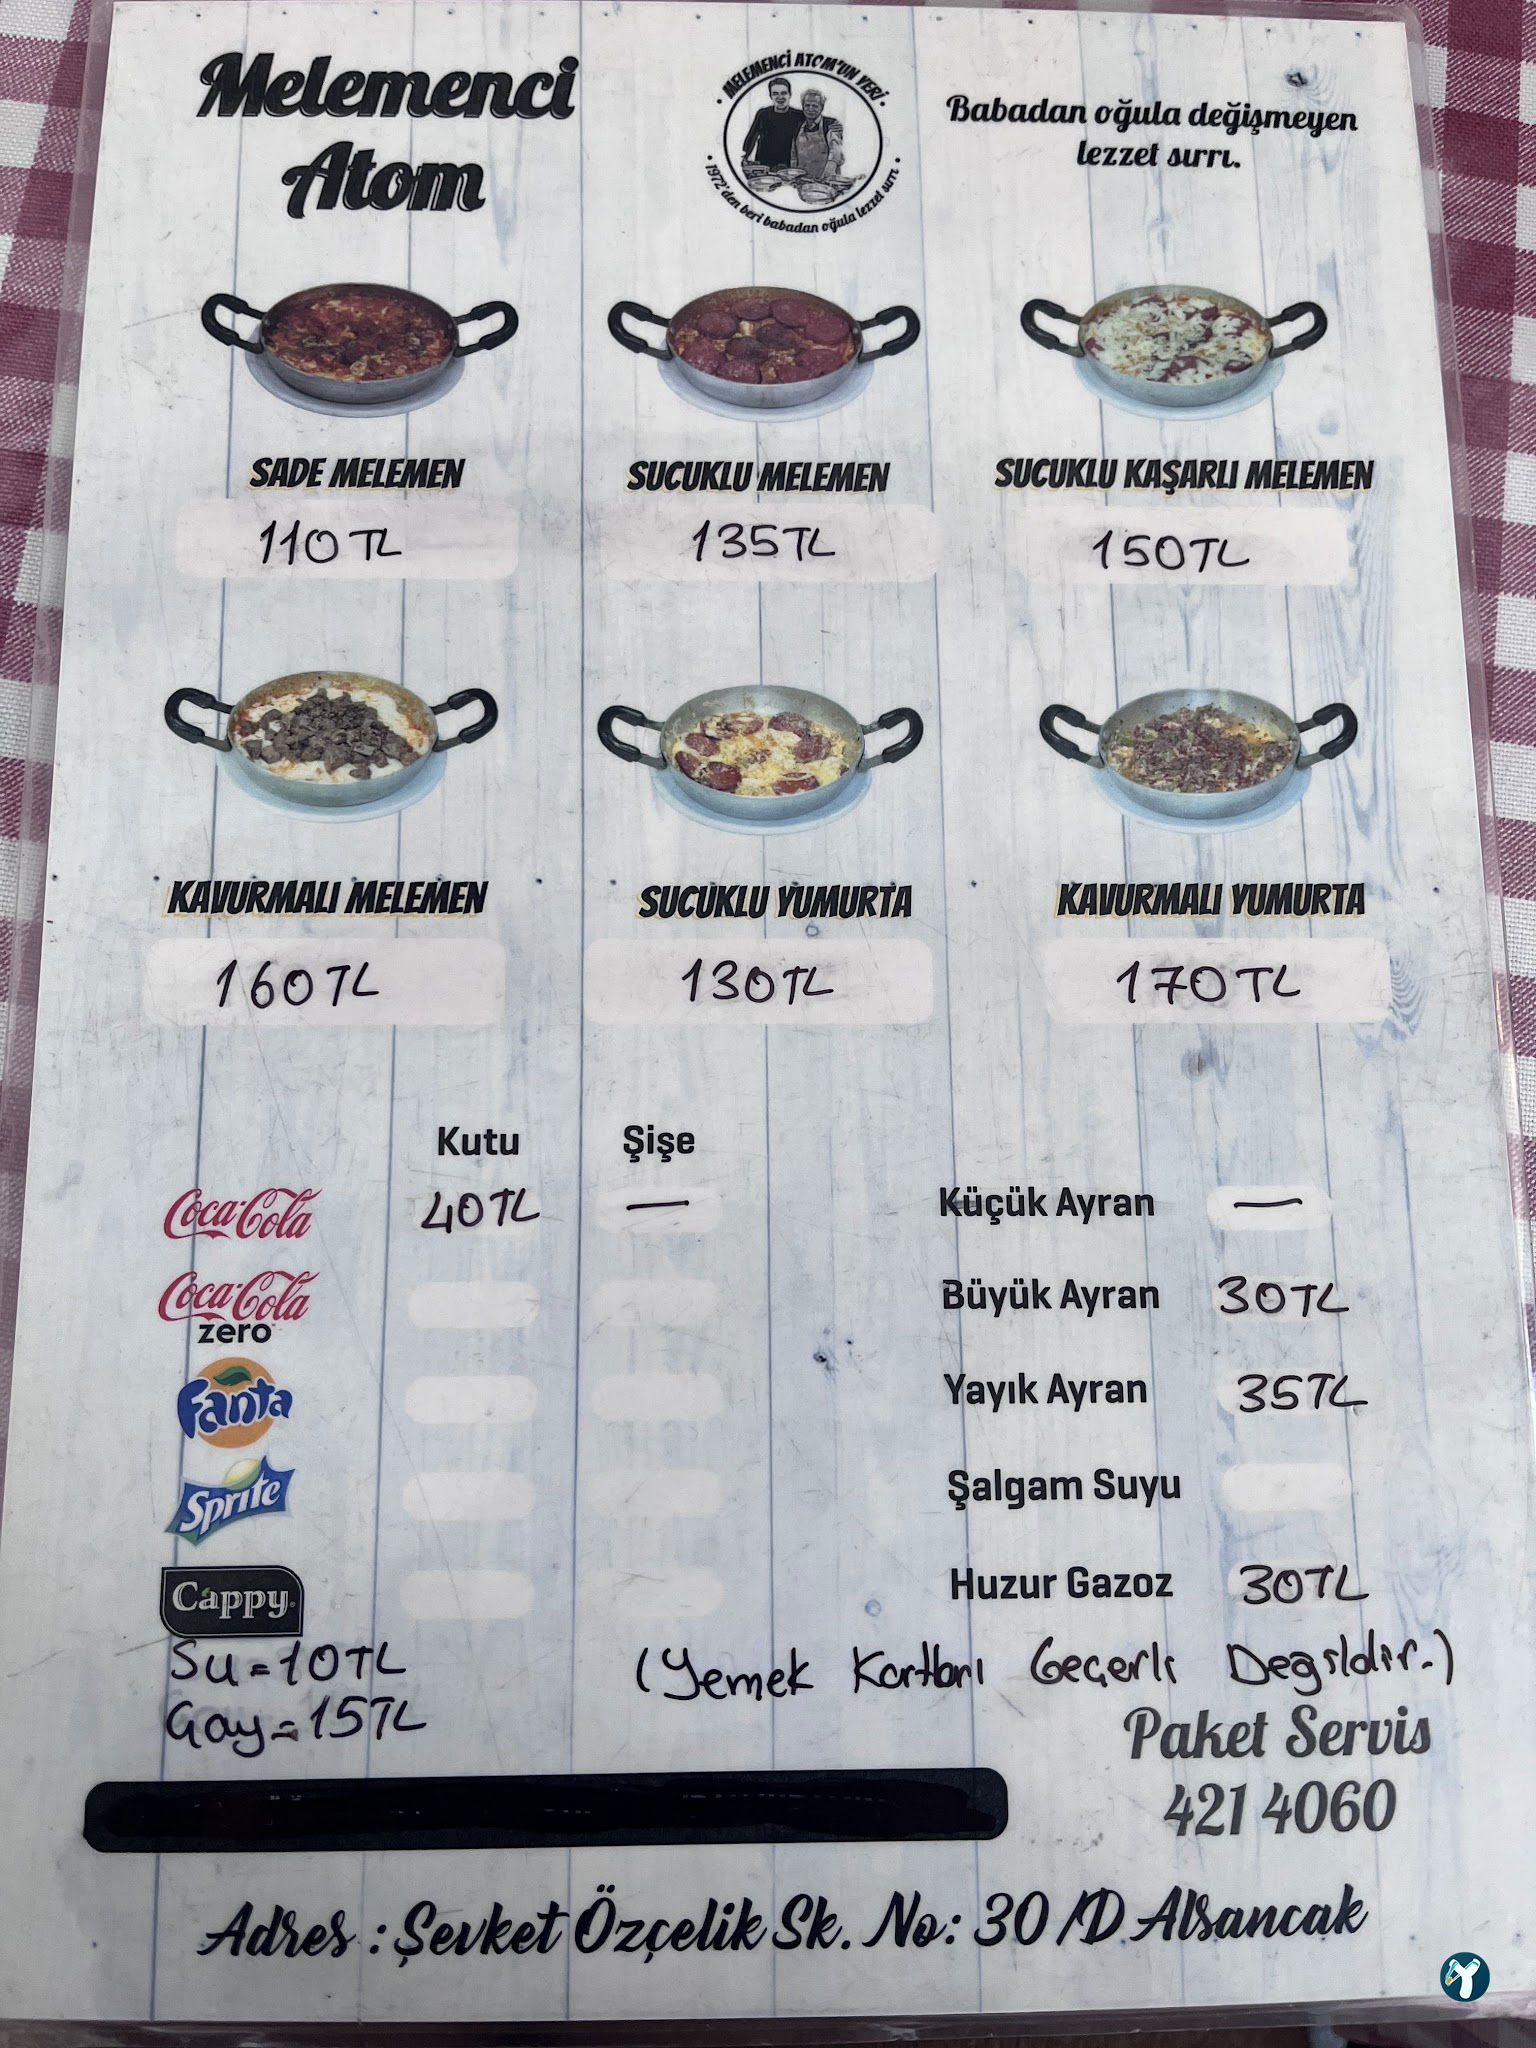 Melemenci
Atom
MELEMENCİ ATOM'UN YERİ
1972'den beri babadan oğula lezzet sırrı
Babadan oğula değişmeyen
lezzet sırrı.
SADE MELEMEN
SUCUKLU MELEMEN
SUCUKLU KAŞARLI MELEMEN
110 TL
135 TL
150 TL
KAVURMALI MELEMEN
SUCUKLU YUMURTA
KAVURMALI YUMURTA
160 TL
130 TL
170 TL
Kutu Şişe
Coca-Cola 40 TL —
Coca-Cola
zero
Fanta
Sprite
Cappy
Küçük Ayran —
Büyük Ayran 30 TL
Yayık Ayran 35 TL
Şalgam Suyu
Huzur Gazoz 30 TL
Su = 10 TL
Çay = 15 TL
(Yemek Kartları Geçerli Değildir.)
Paket Servis
421 4060
Adres : Şevket Özçelik Sk. No: 30 /D Alsancak